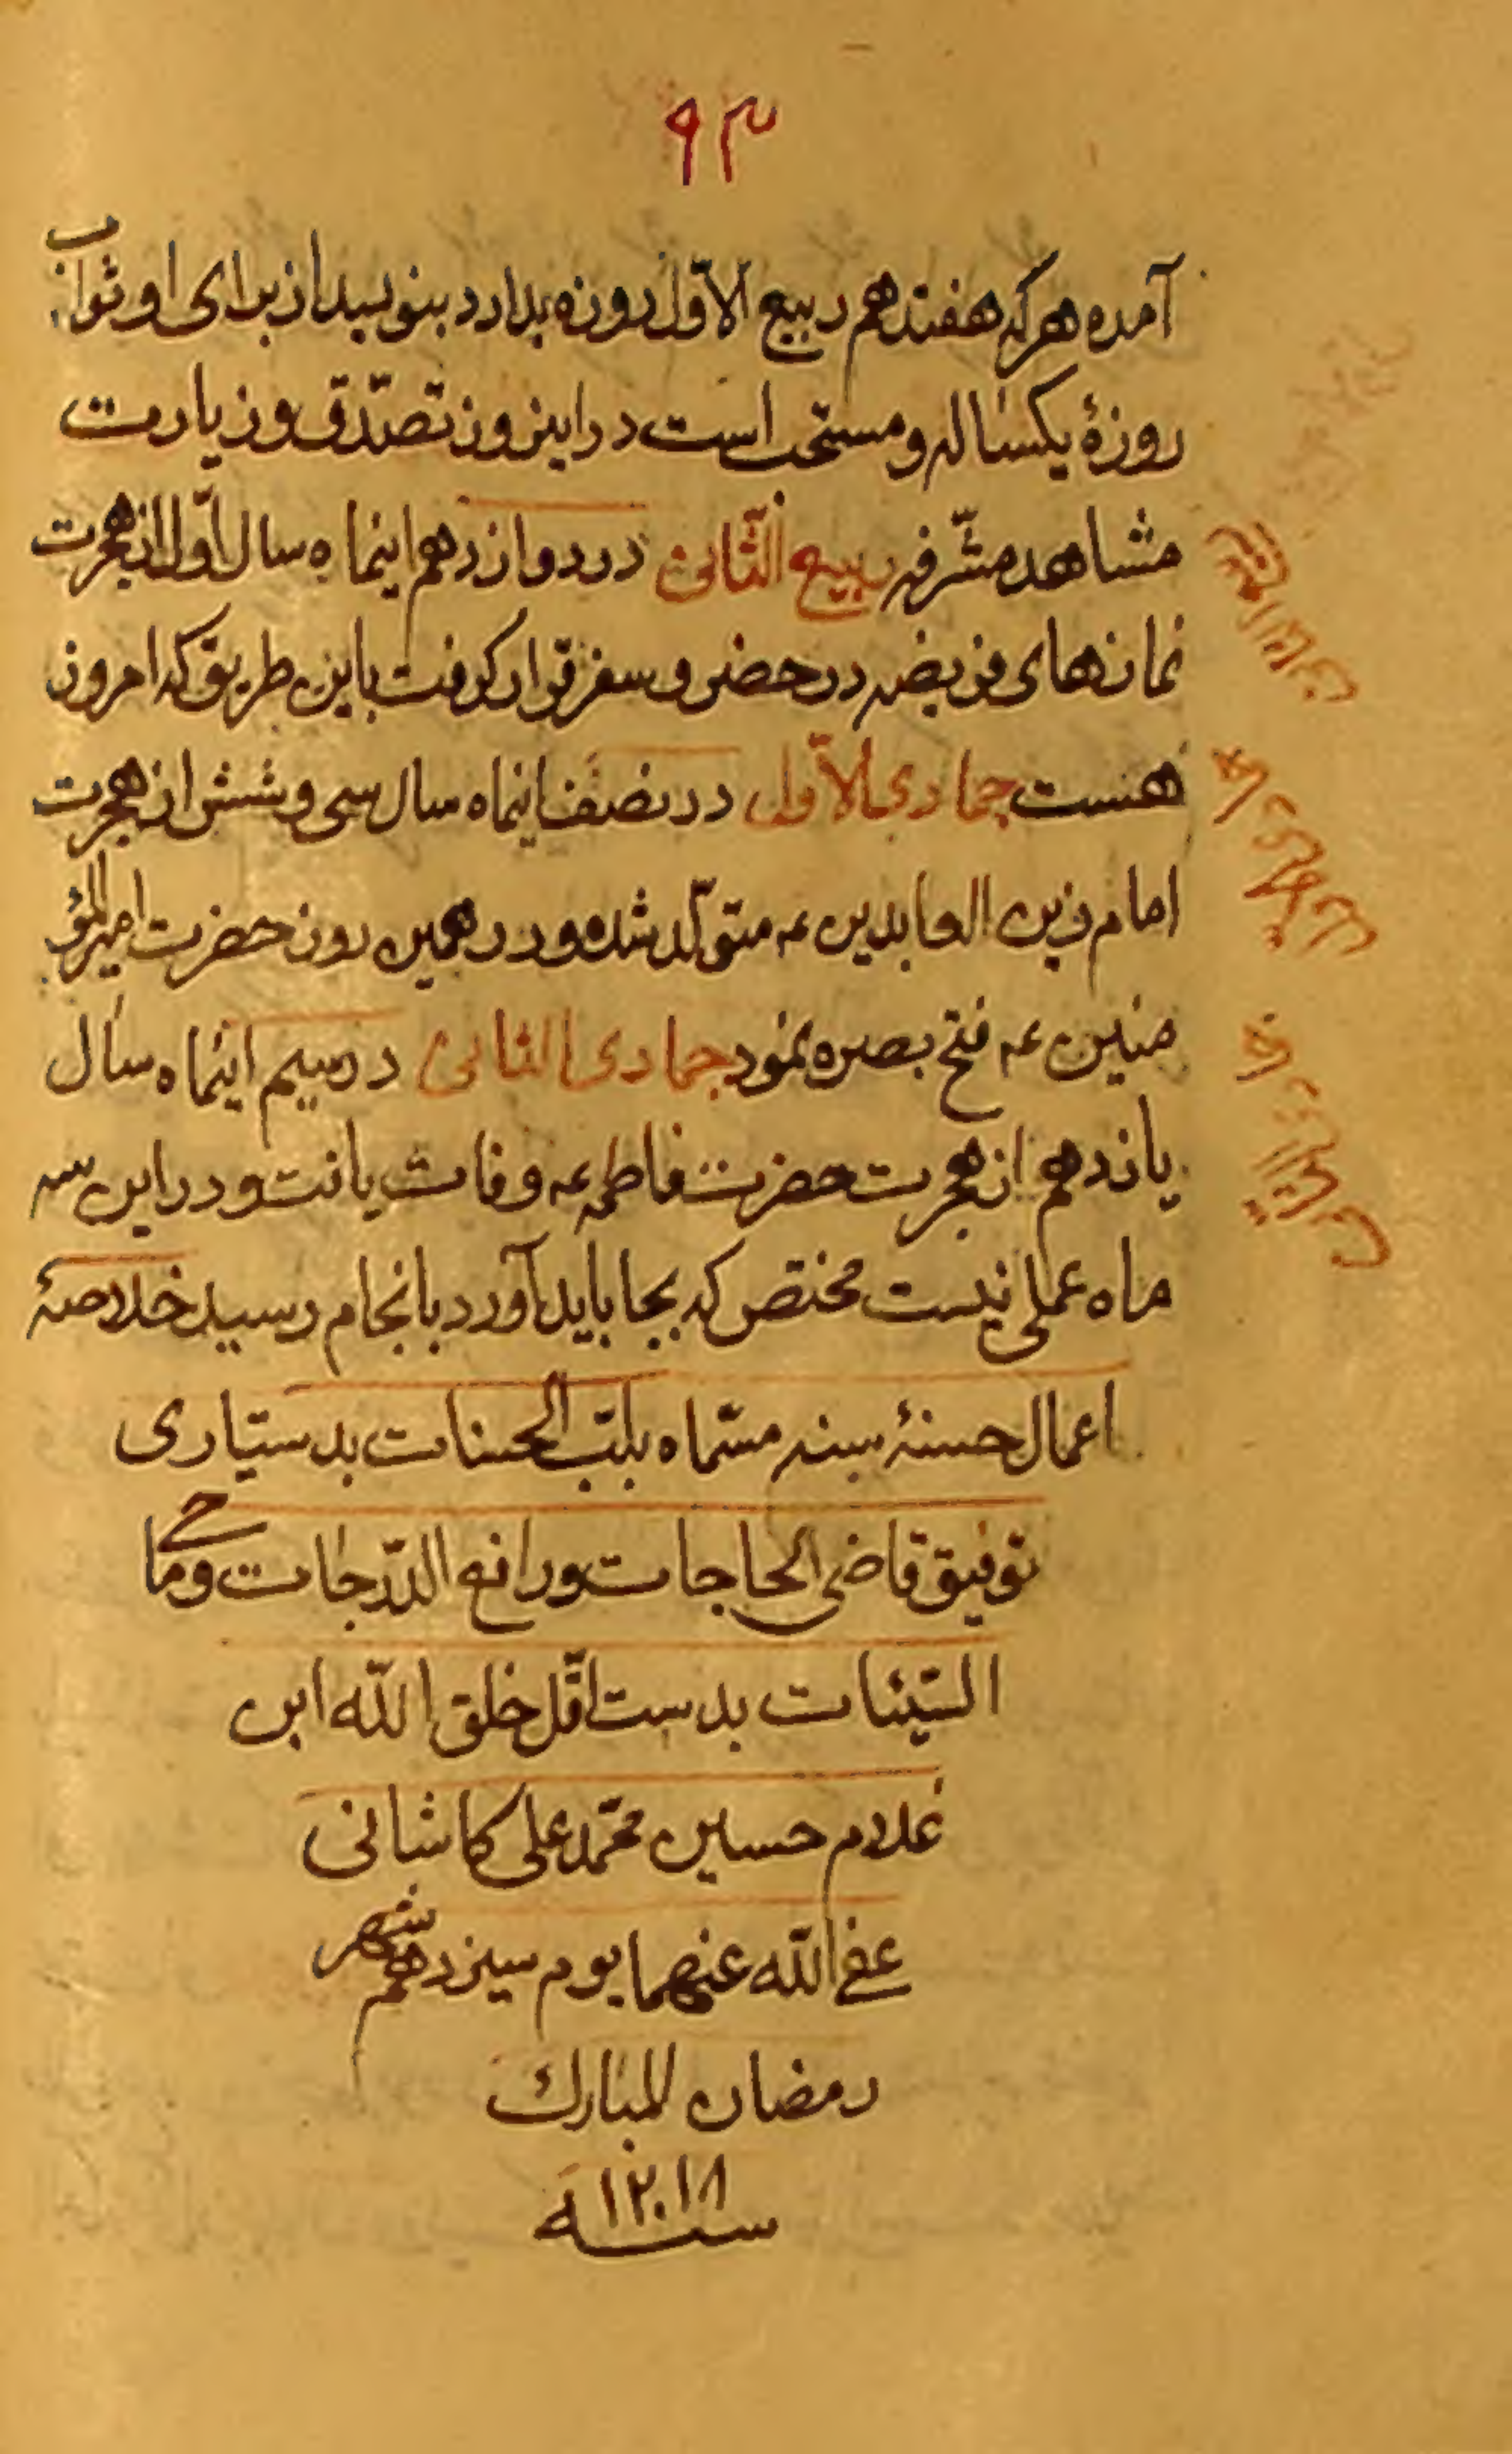 ۹۳
آمده هر که هفتدهم ربیع الاوّل روزه بدارد بنویسد از برای او ثواب
روزهٔ یکساله و مستحب است در این روز تصدّق و زیارت
مشاهد مشرّفه ربیع الثّانی در دوازدهم اینماه سال اوّل از هجرت
نمازهای فریضه در حضر و سفر قرار گرفت باین طریق که امروز
هست جمادی الاّول در نصف اینماه سال سی و شش از هجرت
امام زین العابدین عه متوّلد شده و در همین روز حضرت امیرالمؤ
منین عه فتح بصره نمود جمادی الثانی در سیم اینماه سال
یازدهم از هجرت حضرت فاطمه عه وفات یافت و در این سه
ماه عملی نیست مختص که بجا باید آورد بانجام رسید خلاصهٔ
اعمال حسنهٔ سنه مسّماه بلبّ الحسنات بدستیاری
توفیق قاضی الحاجات و رافع الدّرجات و ماحی
السّیئات بدست اقّل خلق اللّه ابن
غلام حسین محمّد علی کاشانی
عفی اللّه عنهما یوم سیزدهم شهر
رمضان المبارك
سنه ۱۲۰۱۸